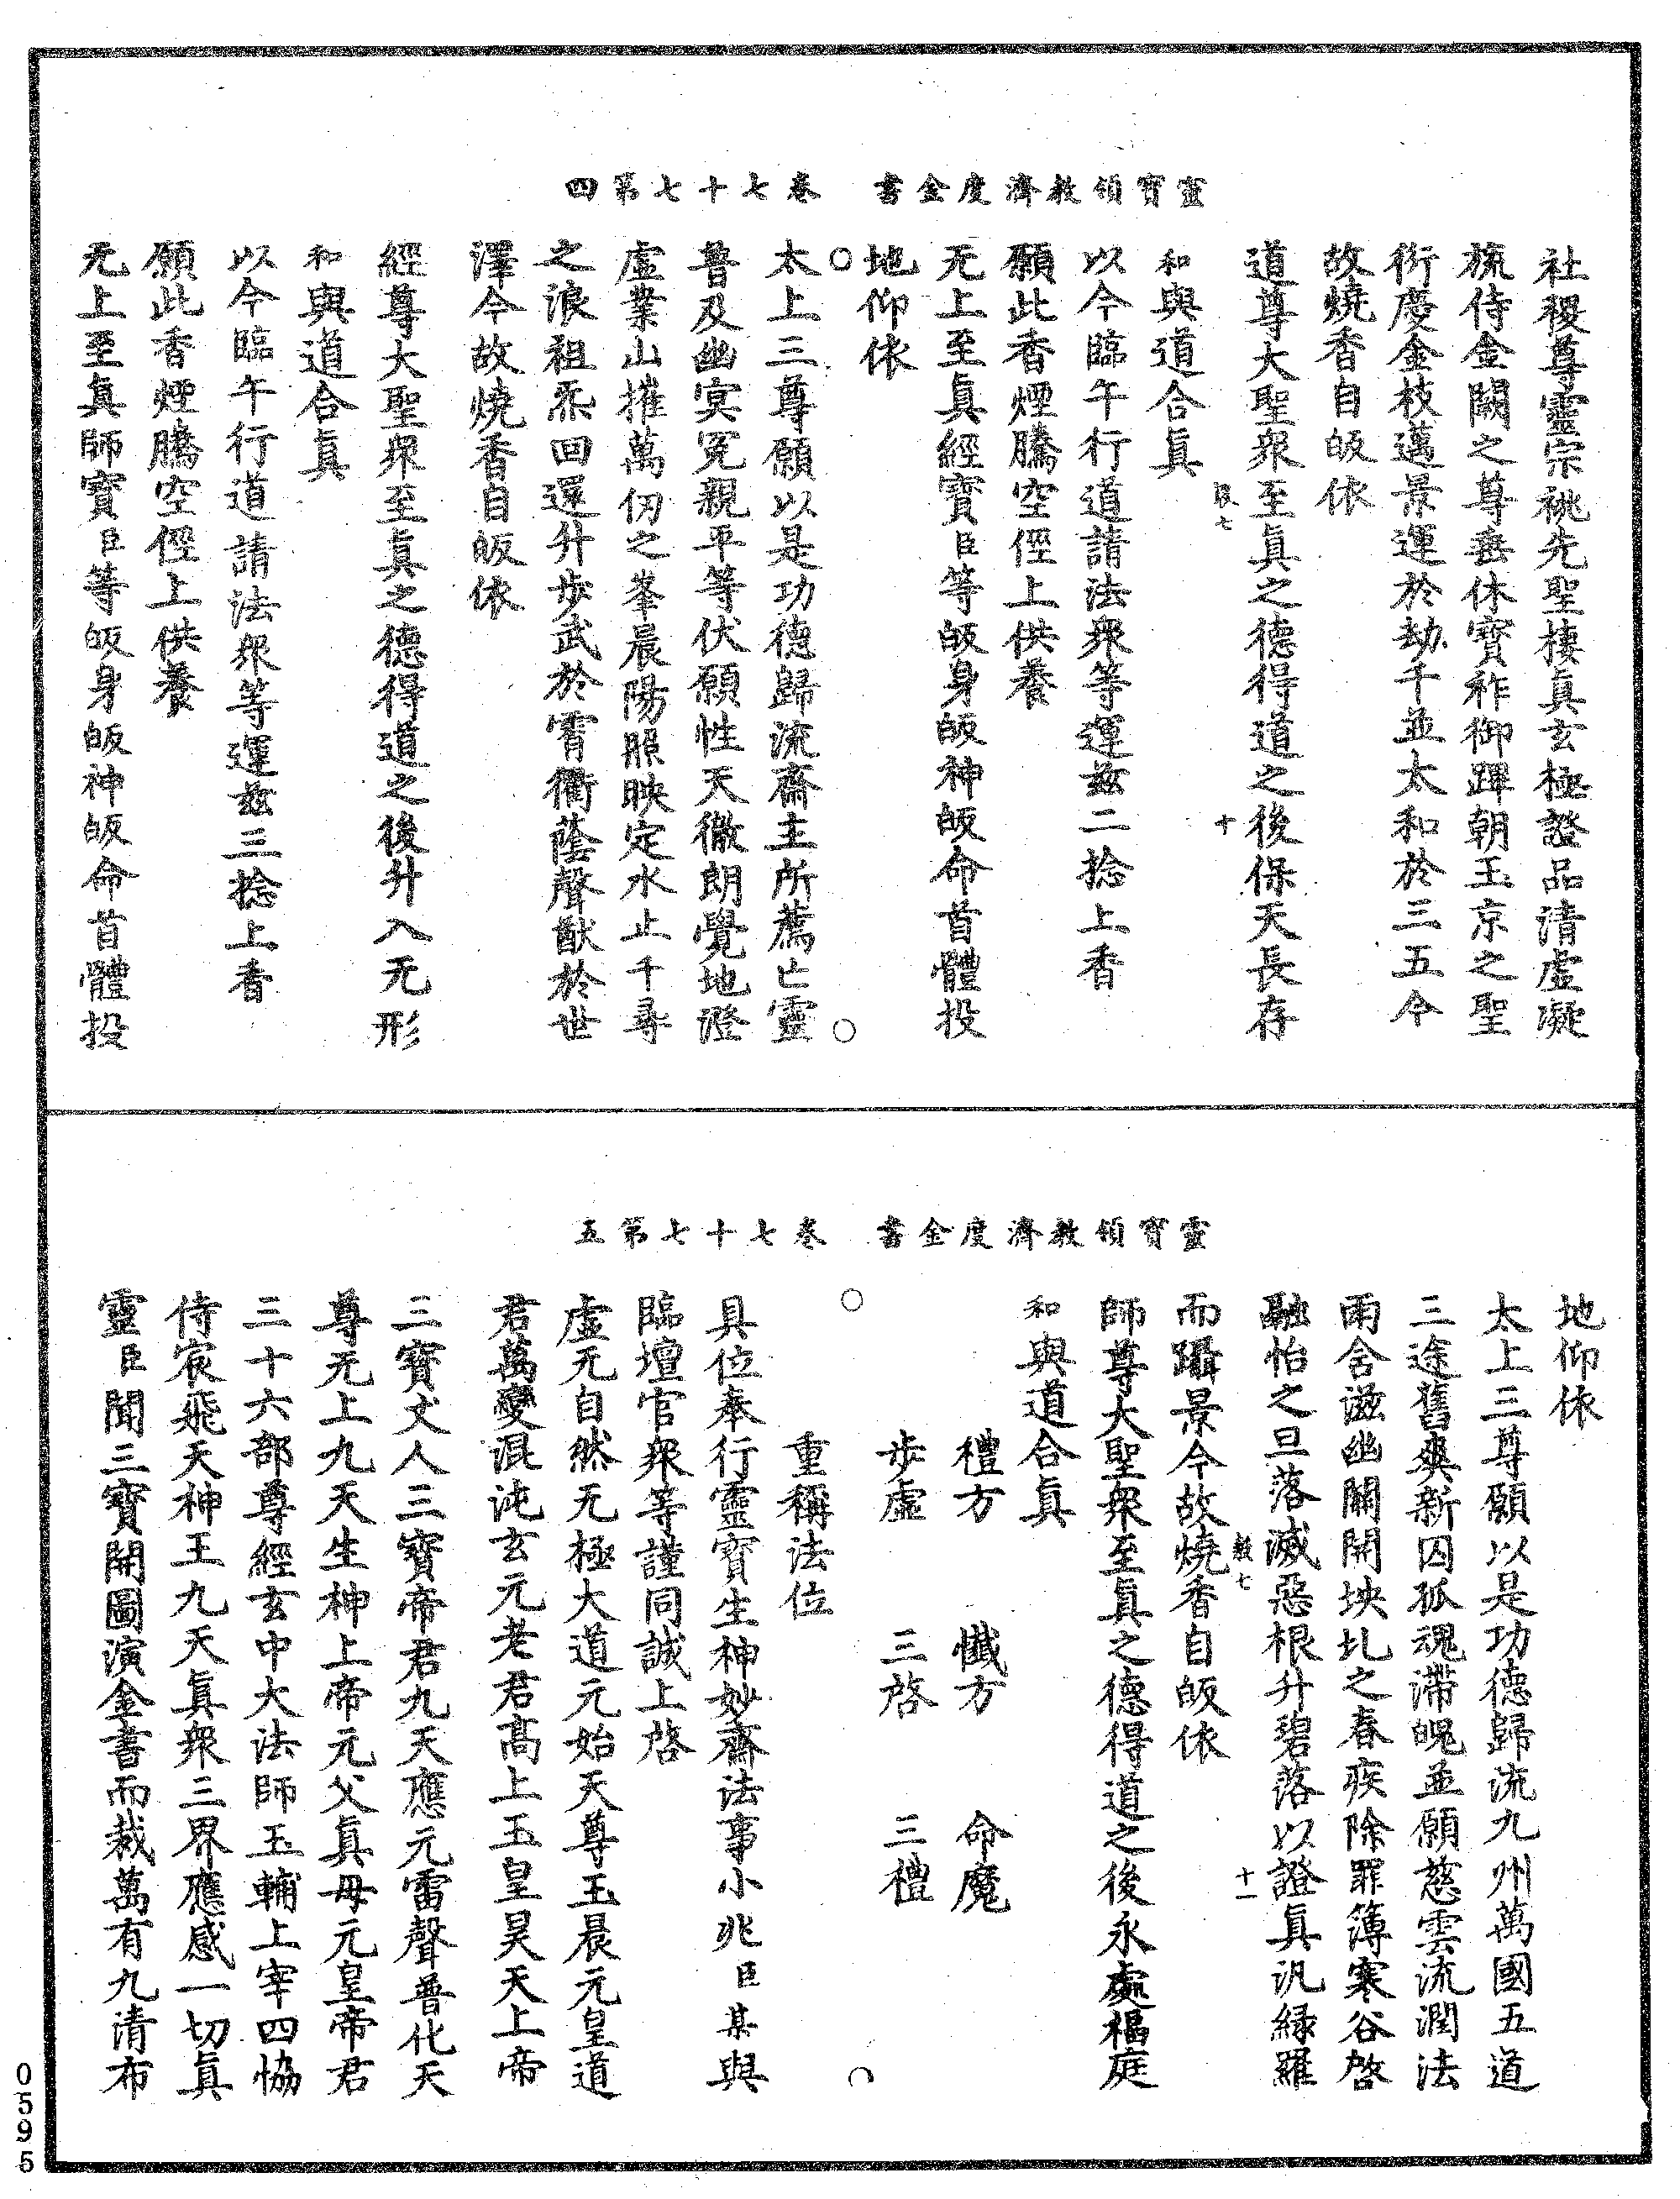 靈寶領教濟度金書　卷七十七第四
社稷尊靈宗祧先聖棲真玄極證品清虛凝
旒侍金闕之尊垂休寶祚御蹕朝玉京之聖
衍慶金枝邁景運於劫千並太和於三五今
故燒香自皈依
道尊大聖眾至真之德得道之後保天長存
七　十
和與道合真
以今臨午行道請法眾等運茲二捻上香
願此香煙騰空徑上供養
无上至真經寶臣等皈身皈神皈命首體投
地仰依
太上三尊願以是功德歸流齋主所薦亡靈
普及幽冥冤親平等伏願性天徹朗覺地澄
虛業山摧萬仞之峯晨陽照映定水止千尋
之浪祖炁回還升步武於霄衢蔭聲猷於世
澤今故燒香自皈依
經尊大聖眾至真之德得道之後升入无形
和與道合真
以今臨午行道請法眾等運茲三捻上香
願此香煙騰空徑上供養
无上至真師寶臣等皈身皈神皈命首體投
靈寶領教濟度金書　卷七十七第五
地仰依
太上三尊願以是功德歸流九州萬國五道
三途舊爽新囚孤魂滯魄並願慈雲流潤法
雨舍滋幽關開坱圠之春疾除罪簿寒谷啓
融怡之旦落滅惡根升碧落以證真汎綠羅
七　十一
而躡景今故燒香自皈依
師尊大聖眾至真之德得道之後永處福庭
和與道合真
禮方　懺方　命魔
步虛　三啓　三禮
重稱法位
具位奉行靈寶生神妙齋法事小兆臣某與
臨壇官眾等謹同誠上啓
虛无自然无極大道元始天尊玉晨元皇道
君萬變混沌玄元老君高上玉皇昊天上帝
三寶丈人三寶帝君九天應元雷聲普化天
尊无上九天生神上帝元父真母元皇帝君
三十六部尊經玄中大法師玉輔上宰四協
侍宸飛天神王九天真眾三界應感一切真
靈臣聞三寶開圖演金書而裁萬有九清布
0595